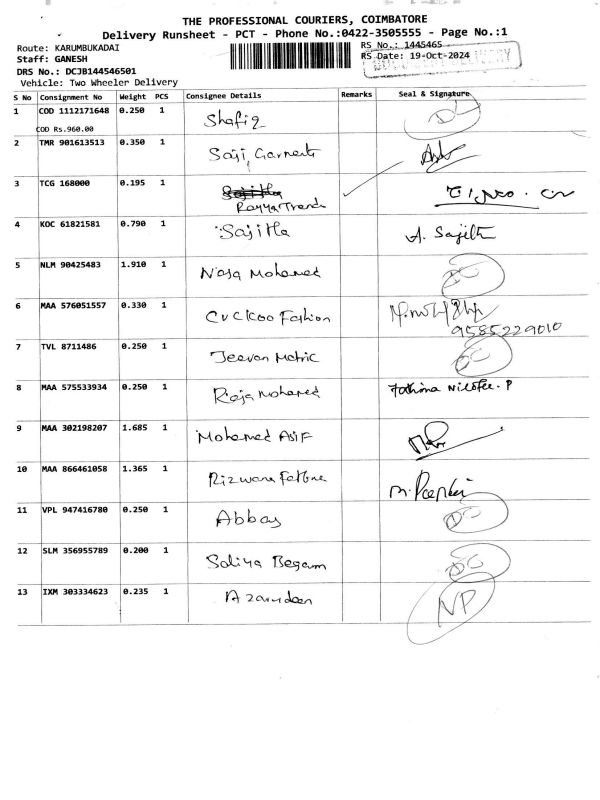 THE PROFESSIONAL COURIERS, COIMBATORE
Delivery Runsheet - PCT - Phone No.:0422-3505555 - Page No.:1
Route: KARUMBUKADAI
RS No.: 1445465
Staff: GANESH
RS Date: 19-Oct-2024
DRS No.: DCJB144546501
Vehicle: Two Wheeler Delivery
S No Consignment No Weight PCS Consignee Details Remarks Seal & Signature
1 COD 1112171648 0.250 1 Shafiq DC
COD Rs.960.00
2 TMR 901613513 0.350 1 Saji, Garments
3 TCG 168000 0.195 1
Rayya Trends
4 KOC 61821581 0.790 1 Sajitha A. Sajith
5 NLM 90425483 1.910 1 Naja Mohamed DC
6 MAA 576051557 0.330 1 Cuckoo Fashion
9585229010
7 TVL 8711486 0.250 1 Jeevan Matric DC
8 MAA 575533934 0.250 1 Raja Mohamed Fathima Nilofer. P
9 MAA 302198207 1.685 1 Mohamed Asif
10 MAA 866461058 1.365 1 Rizwana Fathima
11 VPL 947416780 0.250 1 Abbas DC
12 SLM 356955789 0.200 1 Saliya Begam DC
13 IXM 303334623 0.235 1 Azarudeen NP